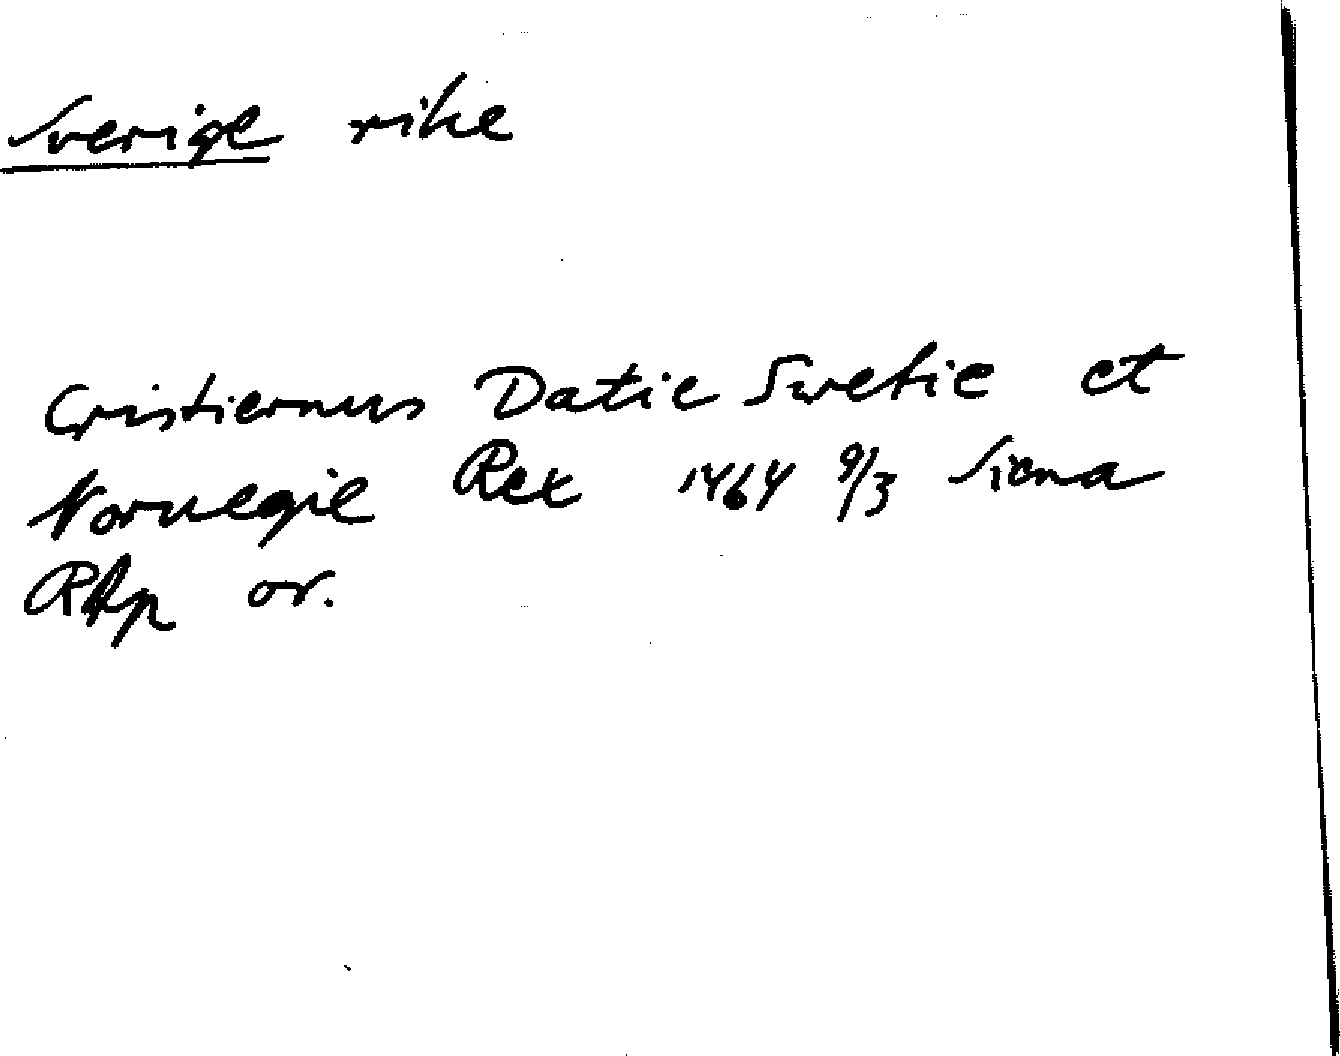 Sverige rike
Cristiernus Datie Swetie et
Noruegie Rex 1464 9/3 Siena
RAp or.